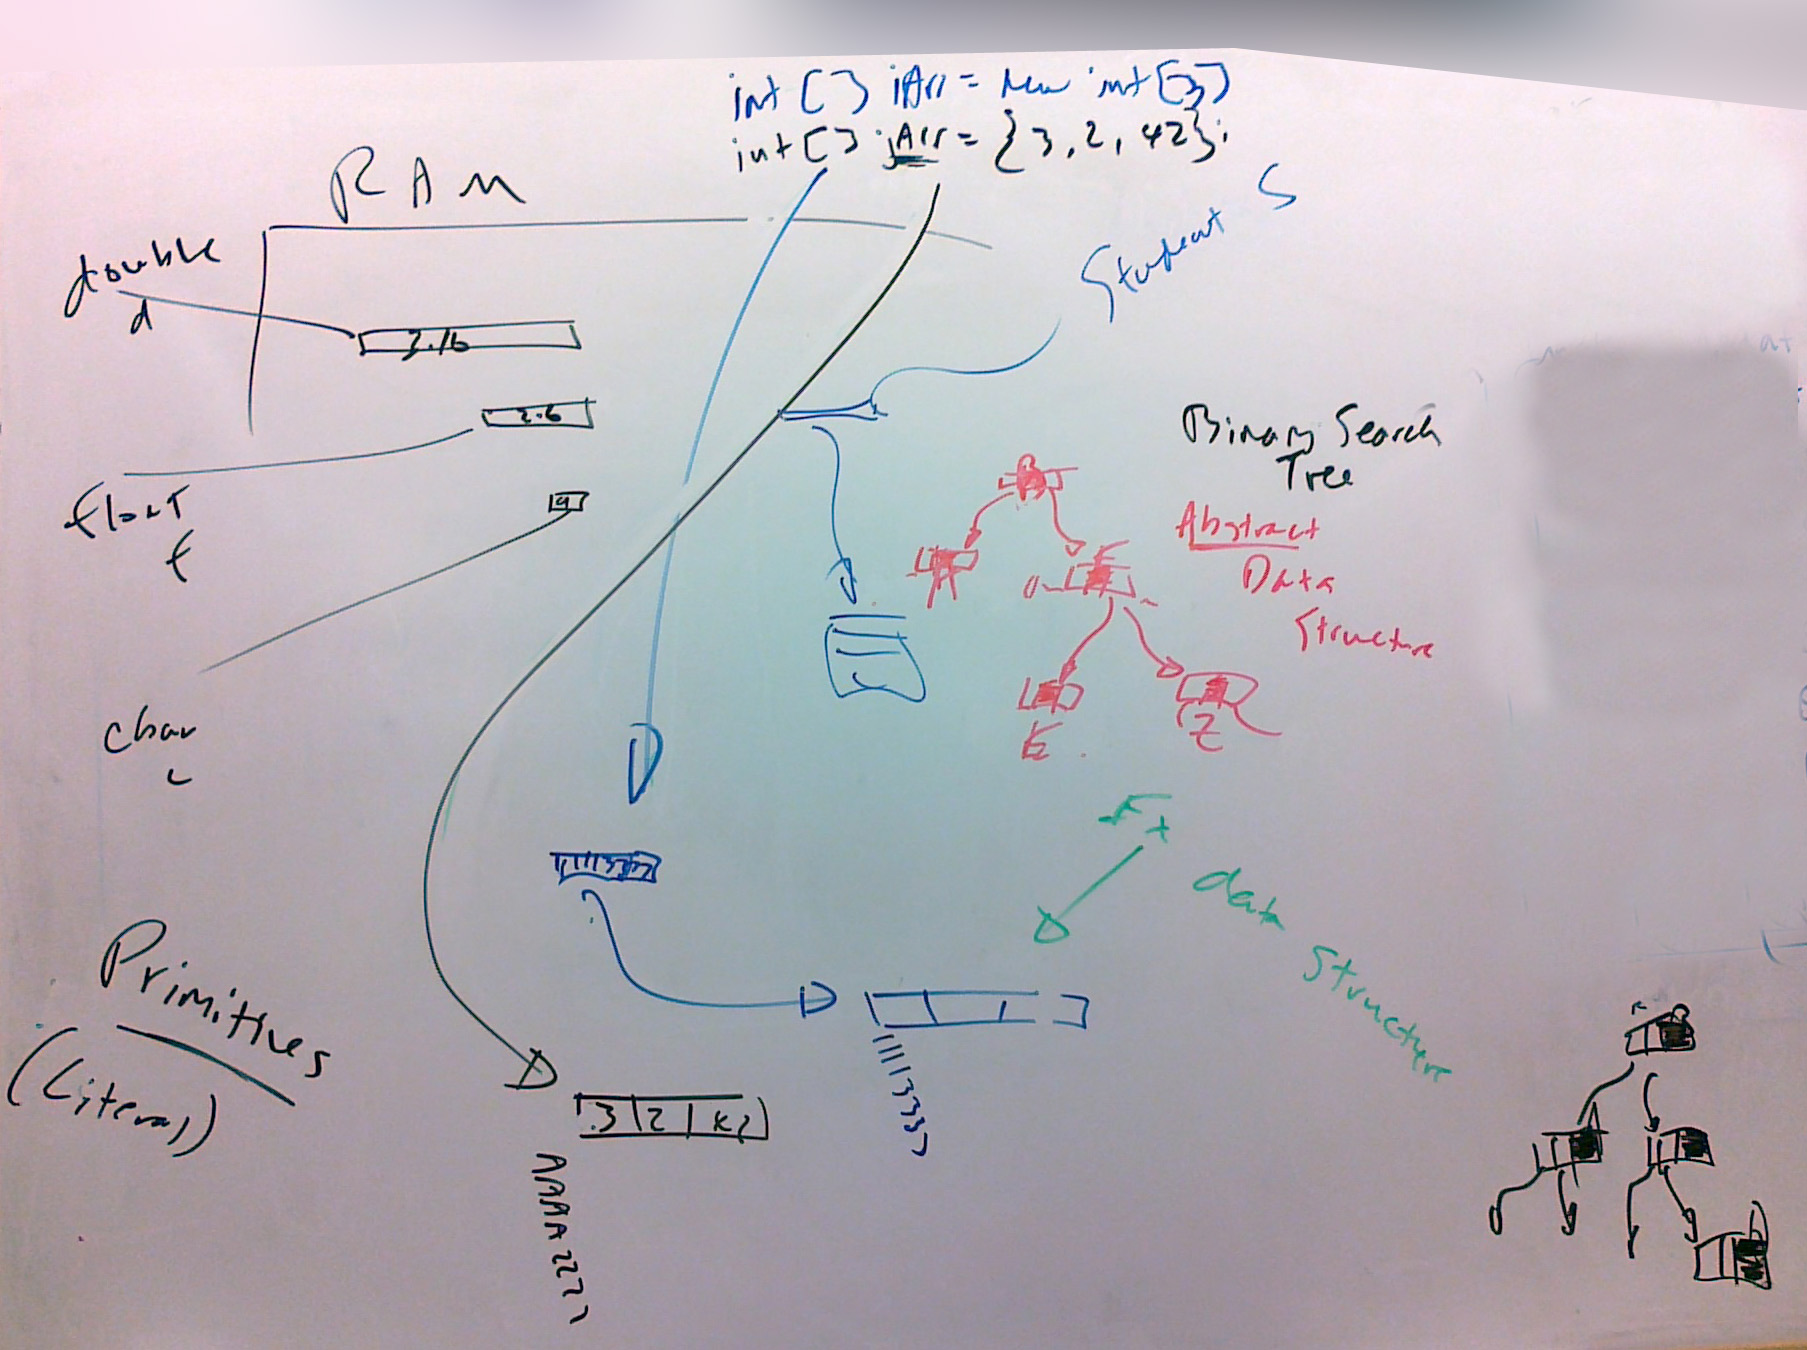 int [] iArr = new int [3]
int [] jArr = {3, 2, 42};
RAM
Student S
double
d
3.16
2.6
float
f
char
c
Binary Search
Tree
Abstract
Data
Structure
A
E
Z
data structure
Primitives
(Literal)
11113333
3 2 42
AAAA2222